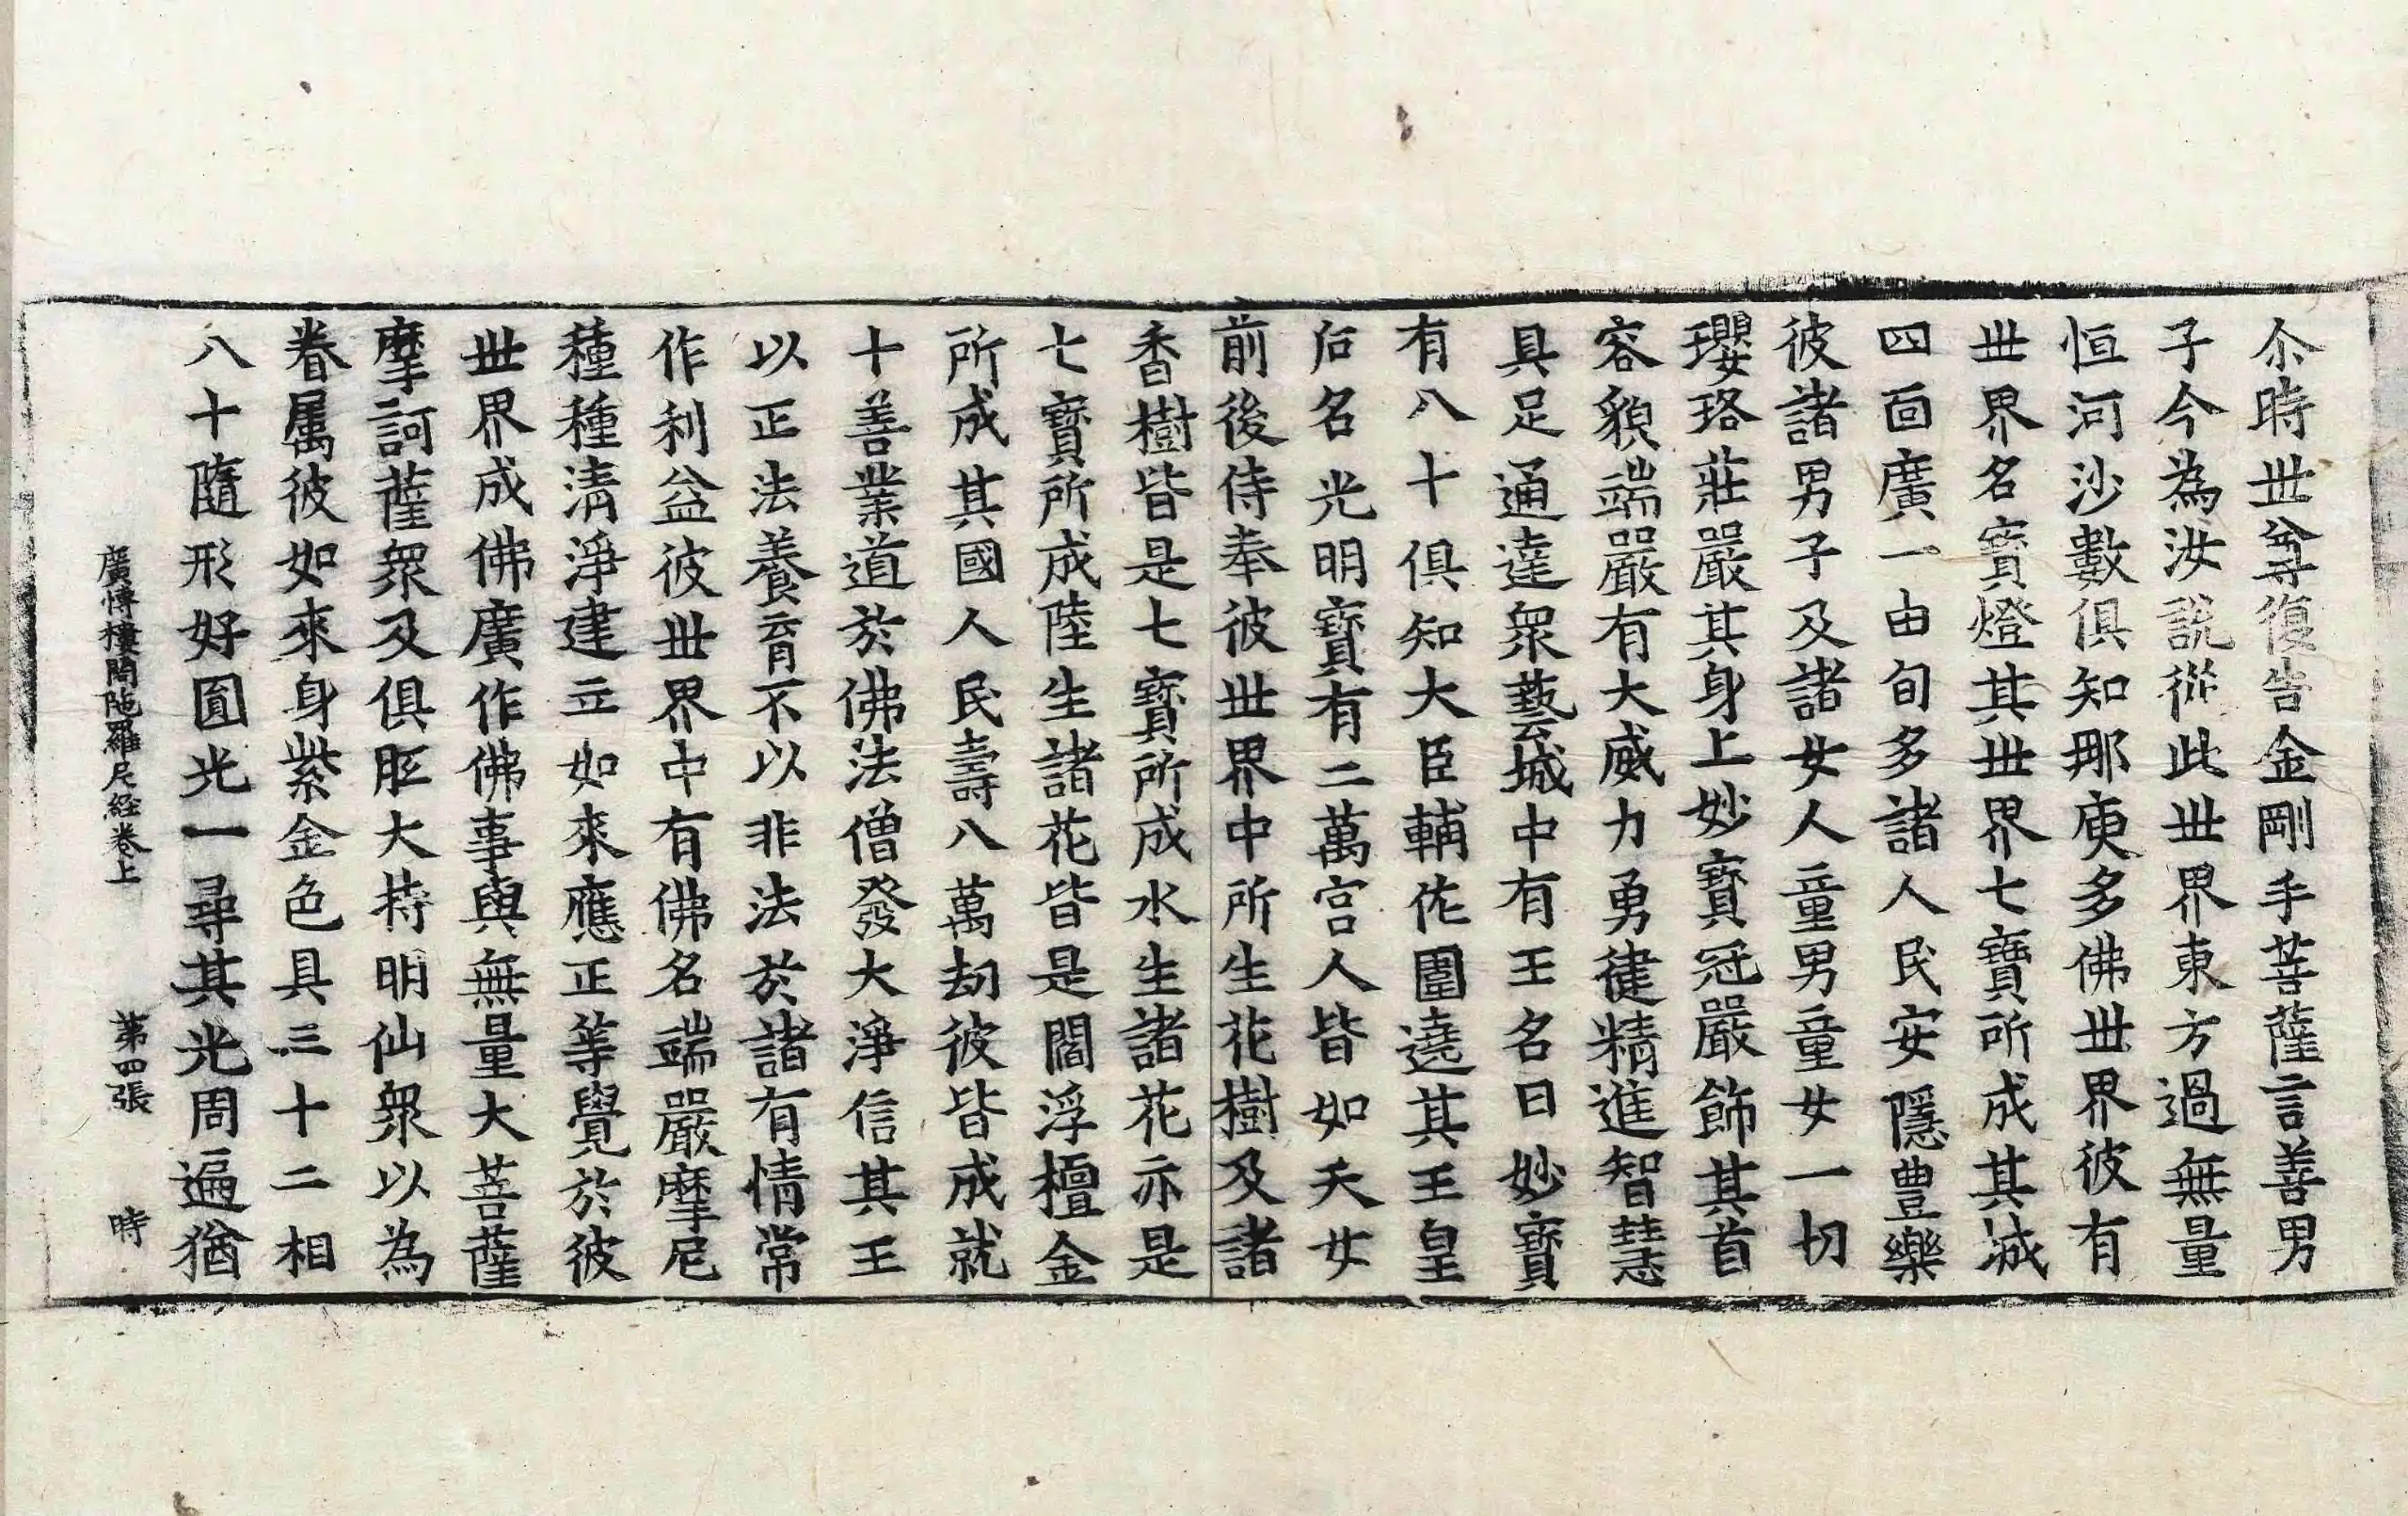 尒時世尊復告金剛手菩薩言善男
子今為汝說從此世界東方過無量
恒河沙數俱知那庾多佛世界彼有
世界名寶燈其世界七寶所成其城
四面廣一由旬多諸人民安隱豊樂
彼諸男子及諸女人童男童女一切
瓔珞莊嚴其身上妙寶冠嚴飾其首
容貌端嚴有大威力勇健精進智慧
具足通達衆藝城中有王名曰妙寶
有八十俱知大臣輔佐圍遶其王皇
后名光明寶有二萬宮人皆如天女
前後侍奉彼世界中所生花樹及諸
香樹皆是七寶所成水生諸花亦是
七寶所成陸生諸花皆是閻浮檀金
所成其國人民壽八萬劫彼皆成就
十善業道於佛法僧發大淨信其王
以正法養育不以非法於諸有情常
作利益彼世界中有佛名端嚴摩尼
種種清淨建立如來應正等覺於彼
世界成佛廣作佛事與無量大菩薩
摩訶薩衆及俱胝大持明仙衆以為
眷屬彼如來身紫金色具三十二相
八十隨形好圓光一尋其光周遍猶
廣博樓閣陁羅尼經卷上 第四張 時